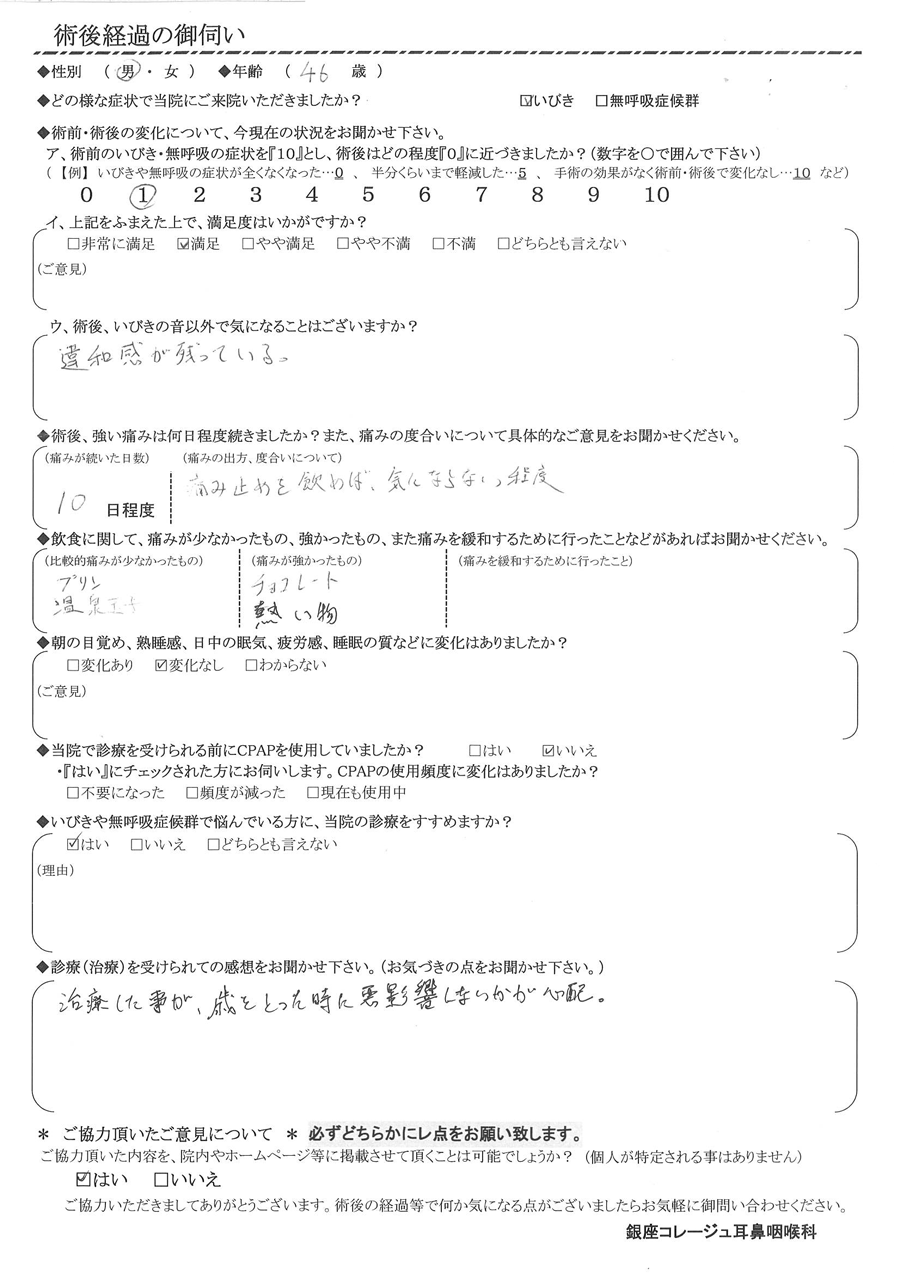 術後経過の御伺い
◆性別 （ 男 ・ 女 ） ◆年齢 （ 46 歳 ）
◆どの様な症状で当院にご来院いただきましたか？ ☑いびき □無呼吸症候群
◆術前・術後の変化について、今現在の状況をお聞かせ下さい。
ア、術前のいびき・無呼吸の症状を『10』とし、術後はどの程度『0』に近づきましたか？（数字を〇で囲んで下さい）
（【例】 いびきや無呼吸の症状が全くなくなった…0 、 半分くらいまで軽減した…5 、 手術の効果がなく術前・術後で変化なし…10 など）
0 1 2 3 4 5 6 7 8 9 10
イ、上記をふまえた上で、満足度はいかがですか？
□非常に満足 ☑満足 □やや満足 □やや不満 □不満 □どちらとも言えない
（ご意見）
ウ、術後、いびきの音以外で気になることはございますか？
違和感が残っている。
◆術後、強い痛みは何日程度続きましたか？また、痛みの度合いについて具体的なご意見をお聞かせください。
（痛みが続いた日数） （痛みの出方、度合いについて）
10 日程度 痛み止めを飲めば、気にならない程度
◆飲食に関して、痛みが少なかったもの、強かったもの、また痛みを緩和するために行ったことなどがあればお聞かせください。
（比較的痛みが少なかったもの） （痛みが強かったもの） （痛みを緩和するために行ったこと）
プリン チョコレート
温泉玉子 熱い物
◆朝の目覚め、熟睡感、日中の眠気、疲労感、睡眠の質などに変化はありましたか？
□変化あり ☑変化なし □わからない
（ご意見）
◆当院で診療を受けられる前にCPAPを使用していましたか？ □はい ☑いいえ
・『はい』にチェックされた方にお伺いします。CPAPの使用頻度に変化はありましたか？
□不要になった □頻度が減った □現在も使用中
◆いびきや無呼吸症候群で悩んでいる方に、当院の診療をすすめますか？
☑はい □いいえ □どちらとも言えない
（理由）
◆診療（治療）を受けられての感想をお聞かせ下さい。（お気づきの点をお聞かせ下さい。）
治療した事が、歳をとった時に悪影響しないかが心配。
＊ ご協力頂いたご意見について ＊ 必ずどちらかにレ点をお願い致します。
ご協力頂いた内容を、院内やホームページ等に掲載させて頂くことは可能でしょうか？ （個人が特定される事はありません）
☑はい □いいえ
ご協力いただきましてありがとうございます。術後の経過等で何か気になる点がございましたらお気軽に御問い合わせください。
銀座コレージュ耳鼻咽喉科